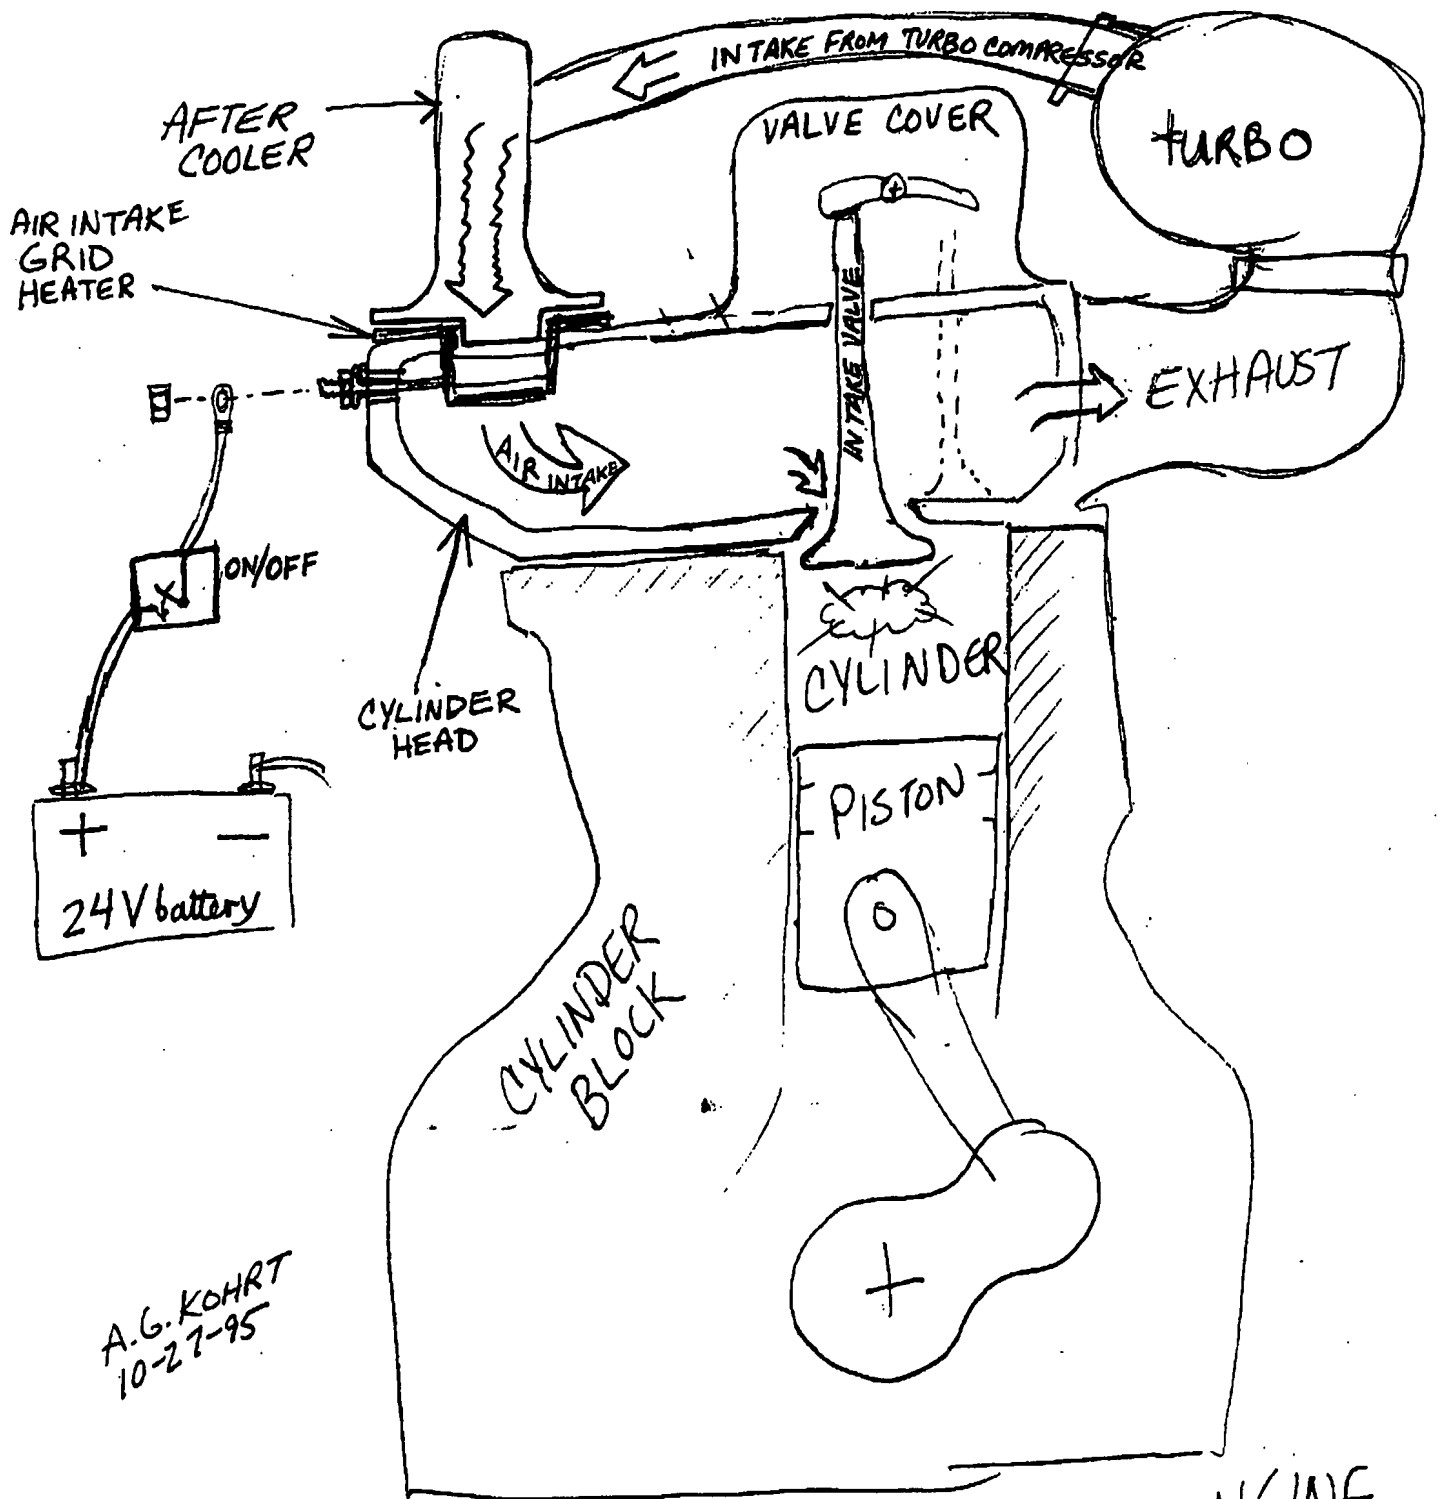 INTAKE FROM TURBO COMPRESSOR
AFTER
COOLER
VALVE COVER
tURBO
AIR INTAKE
GRID
HEATER
INTAKE VALVE
EXHAUST
AIR INTAKE
ON/OFF
CYLINDER
CYLINDER
HEAD
PISTON
+ −
24V battery
CYLINDER
BLOCK
A.G. KOHRT
10-27-95